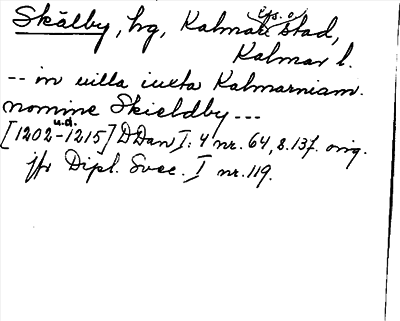 Skälby, hg, Kalmar lfs. o. stad,
Kalmar l.
-- in uilla iuxta Kalmarniam.
nomine Skieldby ---
[1202-1215] u.d. DDan I:4 nr. 64, s. 137. orig.
jfr Dipl. Svec. I nr. 119.